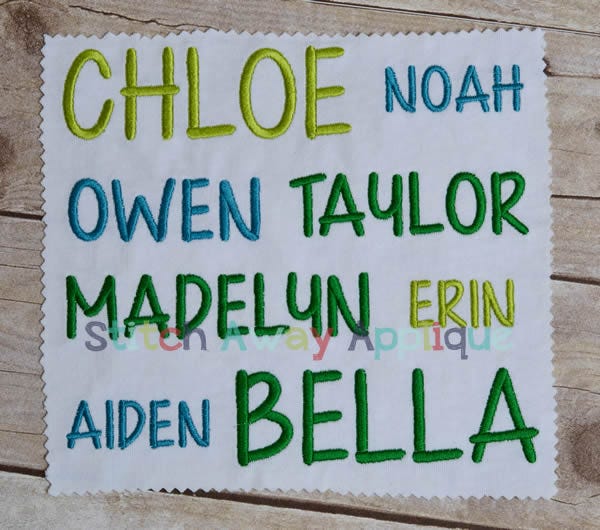 CHLOE NOAH
OWEN TAYLOR
MADELYN ERIN
Stitch Away Applique
AIDEN BELLA